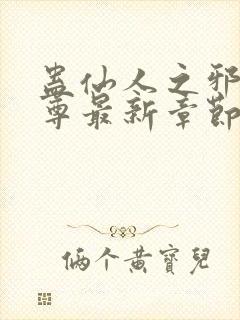 蛊仙人之邪
尊最新章節
俩个黄寶兒